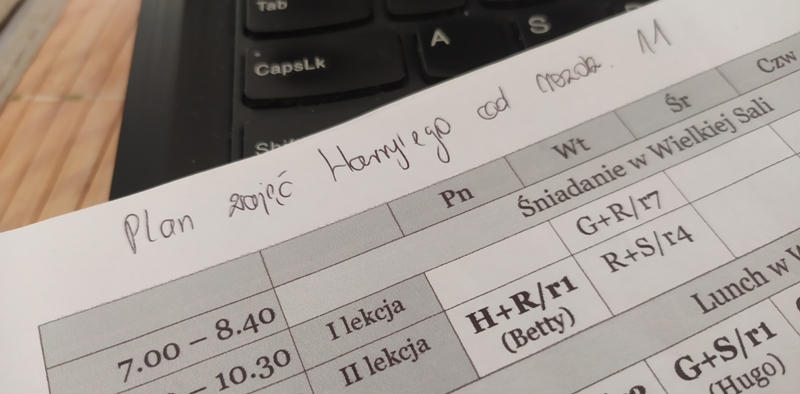 Tab
CapsLk
A
S
Plan zajęć Harry'ego od rozdz. 11
Pn
Wt
Śr
Czw
Śniadanie w Wielkiej Sali
7.00 – 8.40
I lekcja
G+R/r7
– 10.30
II lekcja
H+R/r1
(Betty)
R+S/r4
Lunch w
G+S/r1
(Hugo)